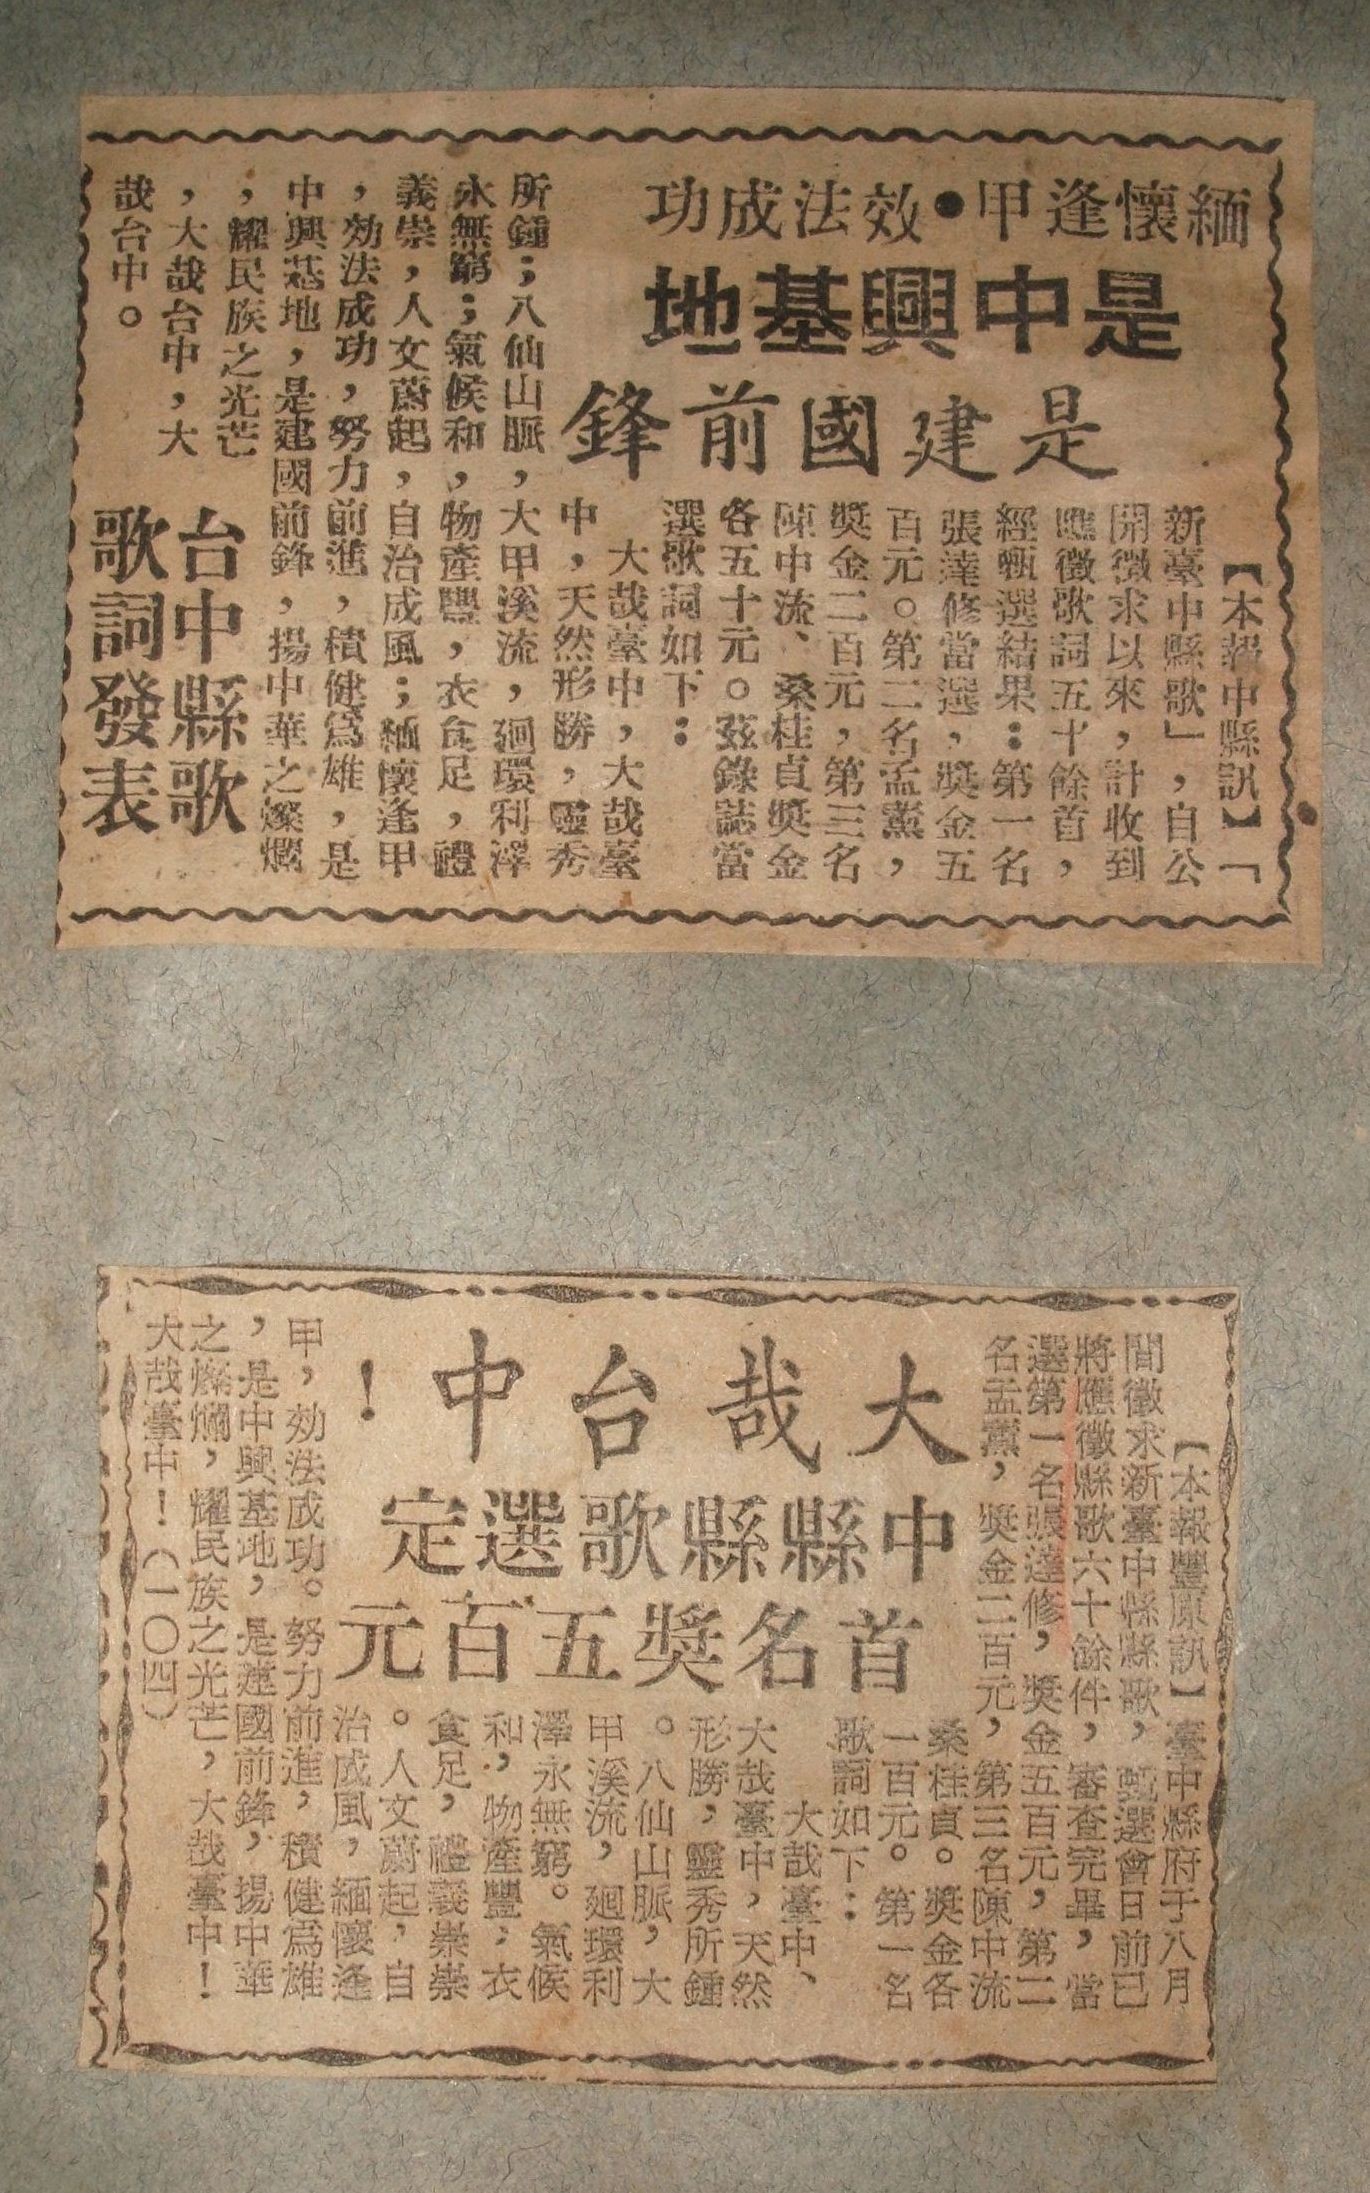 緬懷逢甲•效法成功
是中興基地
是建國前鋒
台中縣歌
歌詞發表
【本報中縣訊】「
新臺中縣歌」，自公
開徵求以來，計收到
應徵歌詞五十餘首，
經甄選結果：第一名
張達修當選，獎金五
百元。第二名孟薰，
獎金二百元，第三名
陳中流、桑桂貞獎金
各五十元。茲錄誌當
選歌詞如下：
大哉臺中，大哉臺
中，天然形勝，靈秀
所鍾；八仙山脈，大甲溪流，廻環利澤
永無窮；氣候和，物產豐，衣食足，禮
義崇，人文蔚起，自治成風；緬懷逢甲
，効法成功，努力前進，積健為雄，是
中興基地，是建國前鋒，揚中華之燦爛
，耀民族之光芒
，大哉台中，大
哉台中。
大哉台中！
中縣縣歌選定
首名獎五百元
【本報豐原訊】臺中縣府于八月
間徵求新臺中縣縣歌，甄選會日前已
將應徵縣歌六十餘件，審查完畢，當
選第一名張達修，獎金五百元，第二
名孟薰，獎金二百元，第三名陳中流
桑桂貞。獎金各
一百元。第一名
歌詞如下：
大哉臺中、
大哉臺中，天然
形勝，靈秀所鍾
。八仙山脈，大
甲溪流，廻環利
澤永無窮。氣候
和，物產豐；衣
食足，禮義崇崇
。人文蔚起，自
治成風，緬懷逢
甲，効法成功。努力前進，積健為雄
，是中興基地，是建國前鋒，揚中華
之燦爛，耀民族之光芒，大哉臺中！
大哉臺中！（一〇四）